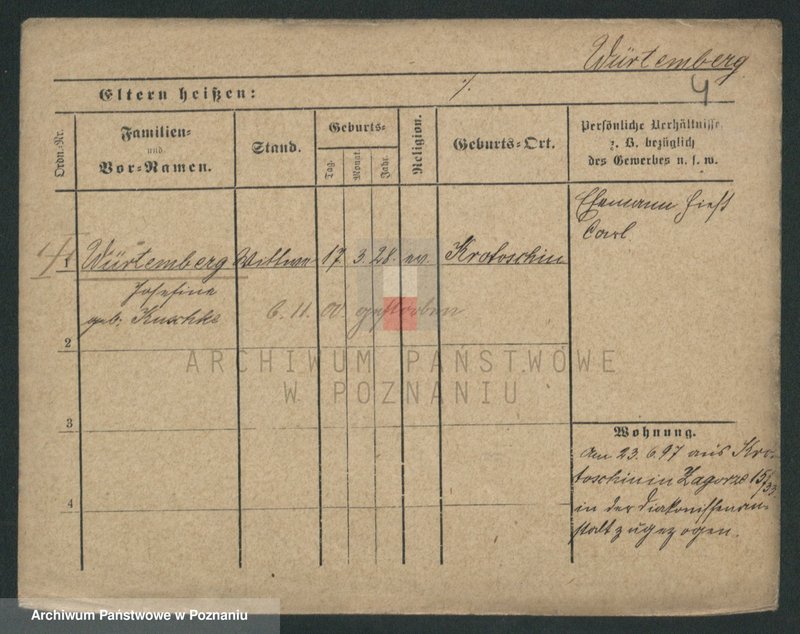 Würtemberg
4
Eltern heißen: ./.
Ordn.-Nr.
Familien-
und
Vor-Namen.
Stand.
Geburts-
Tag.
Monat.
Jahr.
Religion.
Geburts-Ort.
Persönliche Verhältnisse,
z. B. bezüglich
des Gewerbes u. s. w.
Ehemann hieß
Carl
1 Würtemberg Wittwe 17. 3. 28. ev. Krotoschin
Josefine
geb. Kuschke
6. 11. 00 gestorben
2
ARCHIWUM PAŃSTWOWE
W POZNANIU
3
4
Wohnung.
Am 23. 6. 97 aus Kro-
toschin in Zagorze
in der Diakonissenan-
stalt zugezogen.
Archiwum Państwowe w Poznaniu